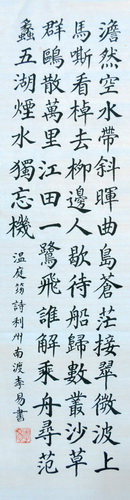 澹然空水帶斜暉曲島蒼茫接翠微波上
馬嘶看棹去柳邊人歇待船歸數叢沙草
群鷗散萬里江田一鷺飛誰解乘舟尋范
蠡五湖煙水獨忘機
温庭筠詩利州南渡李易書